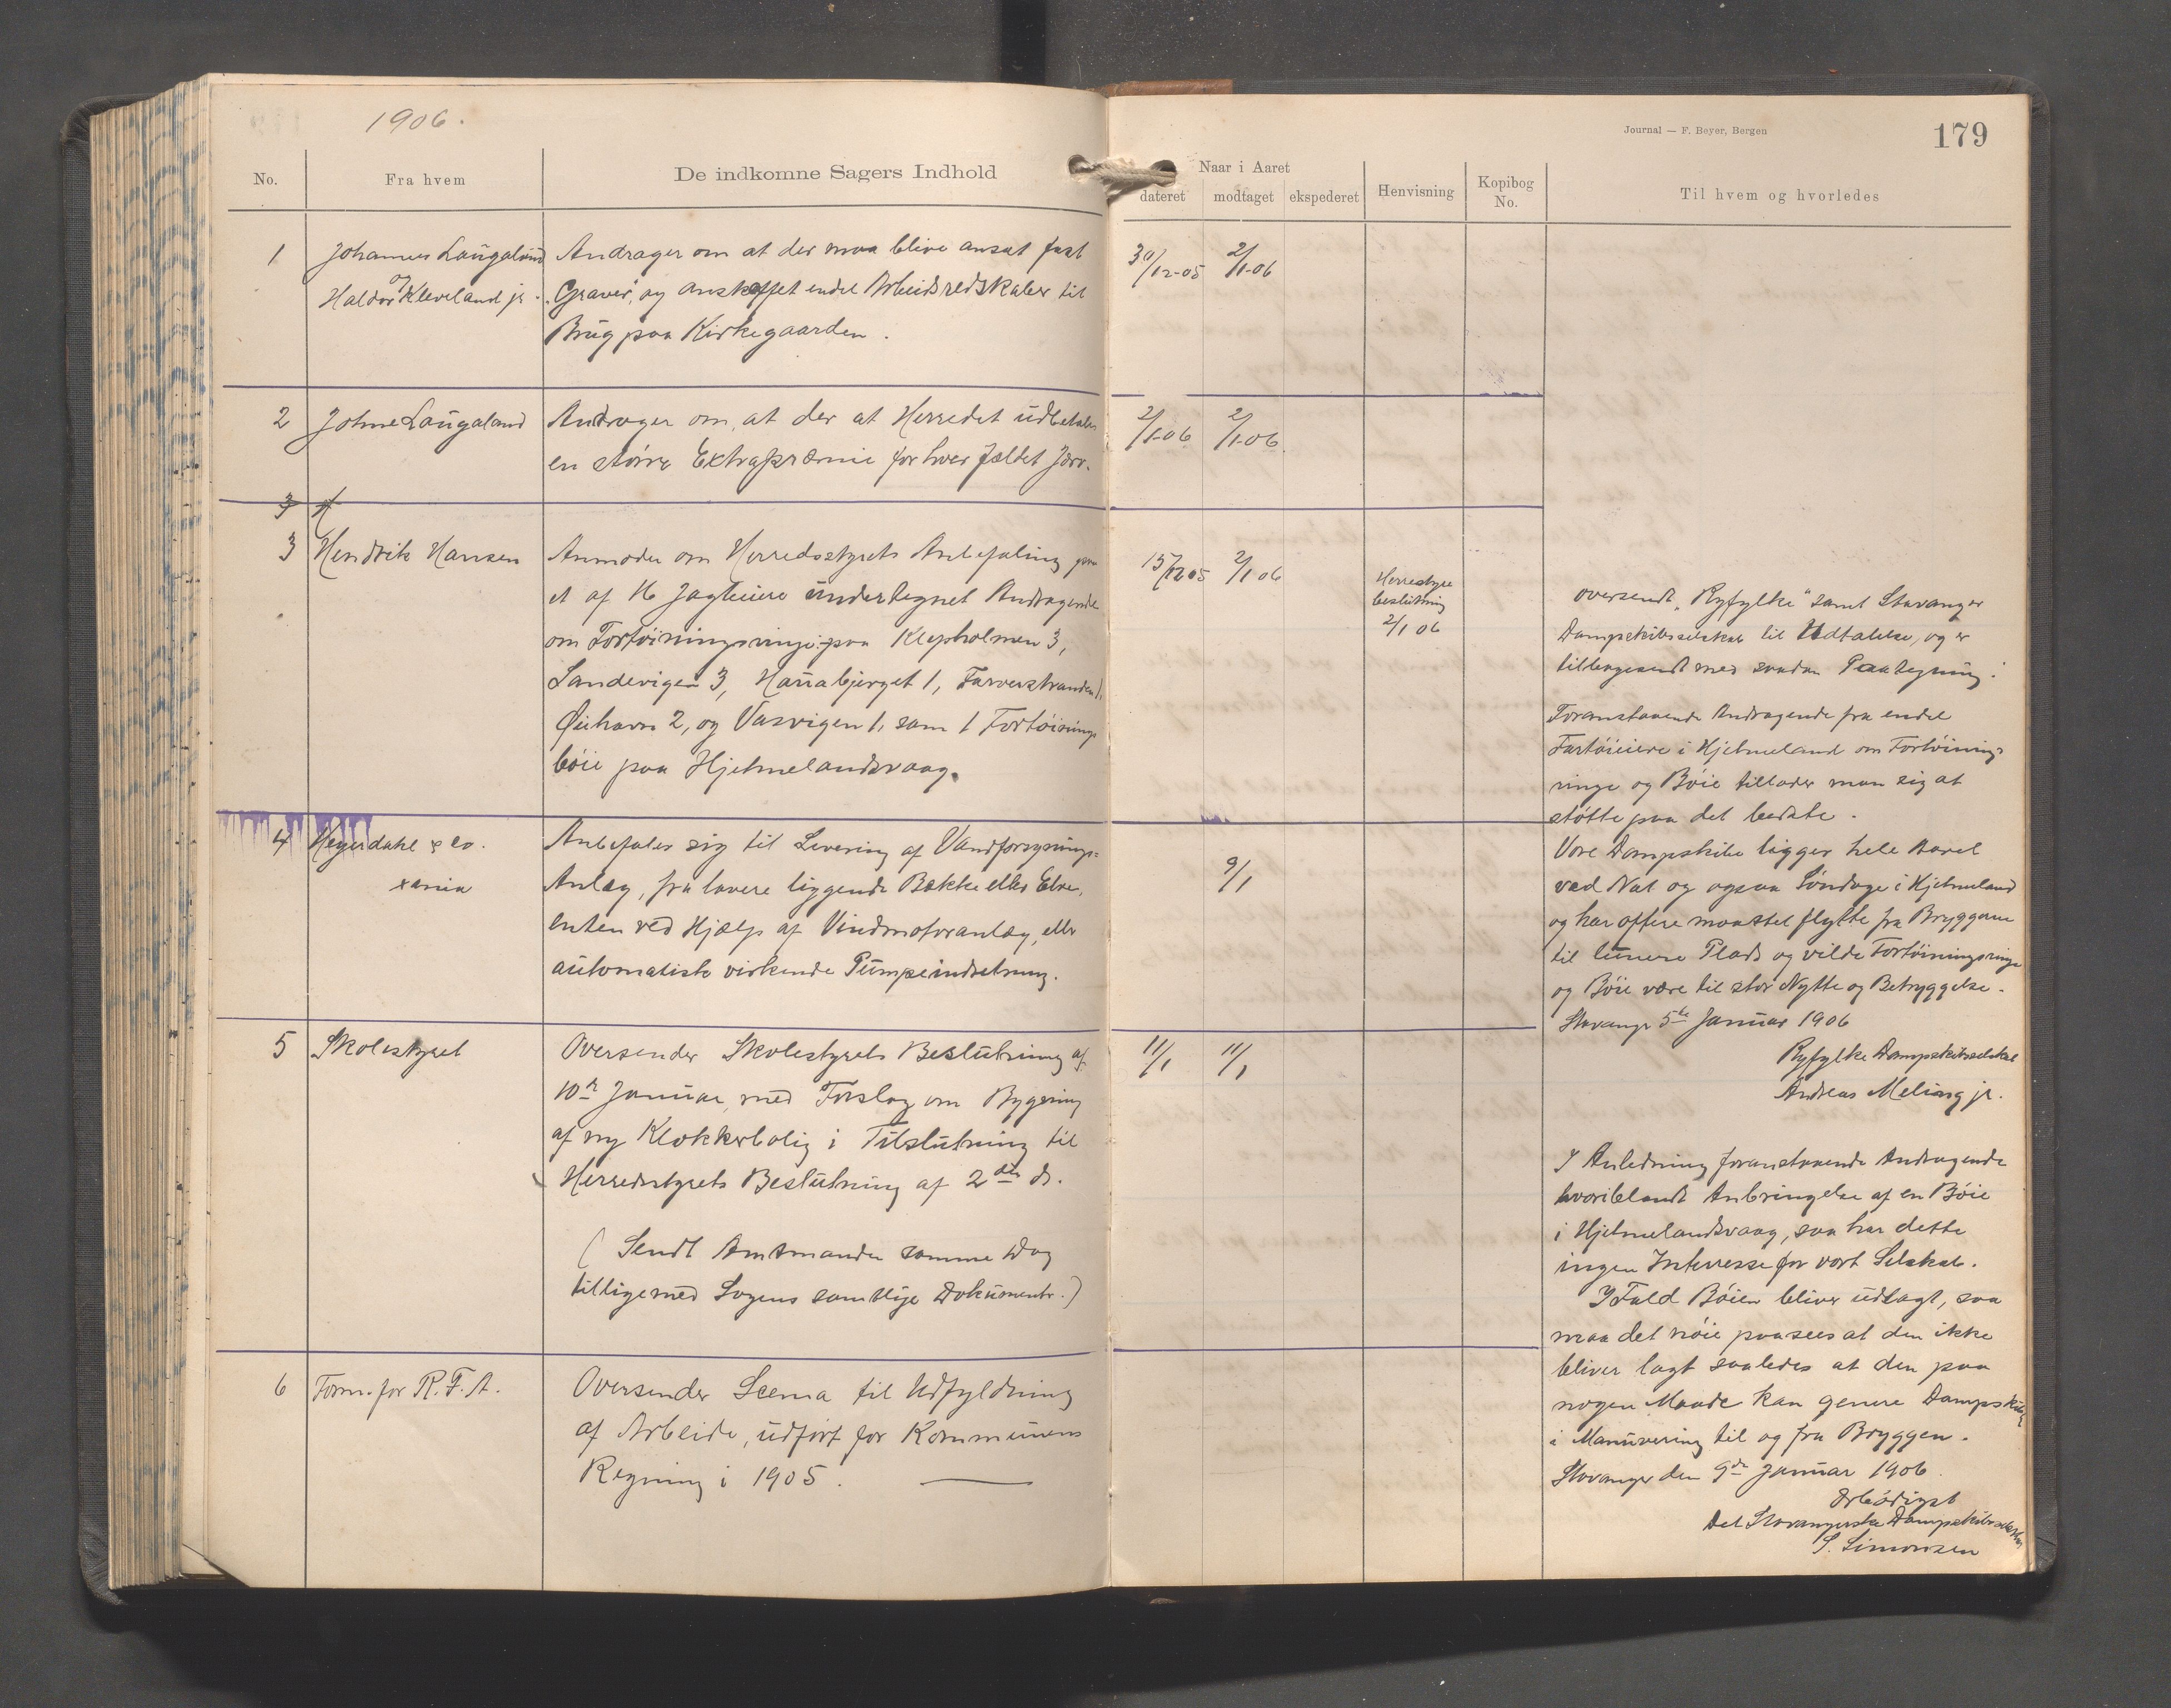 1906.
Journal — F. Beyer, Bergen
179
No.
Fra hvem
De indkomne Sagers Indhold
Naar i Aaret
dateret
modtaget
ekspederet
Henvisning
Kopibog
No.
Til hvem og hvorledes
1
Johannes Laugaland
og
Haldor Kleveland jr.
Andrager om at der maa blive ansat fast
"Graver", og anskaffet endel Arbeidsredskaber til
Brug paa Kirkegaarden.
30/12-05
2/1-06
2
Johne Laugaland
Andrager om, at der at Herredet udbetales
en større Extrapræmie for hver fældet Jærv.
2/1-06
2/1-06
3 H
3
Hendrik Hansen
Anmoder om Herredsstyrets Anbefaling paa
et af 16 Jagteiere undertegnet Andragende
om Fortøiningsringe paa Klepholmen 3,
Sandevigen 3, Hauabjerget 1, Farverstranden 1,
Øiehavn 2, og Vasvigen 1, sam 1 Fortøinings
bøie paa Hjelmelandsvaag.
15/12 05
2/1 06
Herrestyre
beslutning
2/1 06
oversendt "Ryfylke" samt Stavanger
Dampskibsselskab til Udtalelse, og er
tilbagesendt med saadan Paategning:
Foranstaaende Andragende fra endel
Fartøieiere i Hjelmeland om Fortøinings
ringe og Bøie tillader man sig at
støtte paa det bedste.
Vore Dampskibe ligger hele Aaret
ved Nat og ogsaa Søndage i Hjelmeland
og har oftere maattet flytte fra Bryggerne
til lunere Plads og vilde Fortøiningsringe
og Bøie være til stor Nytte og Betryggelse.
Stavanger 5te Januar 1906
Ryfylke Dampskibsselskab
Andreas Meling jr.
4
Heyerdahl & Co.
xania
Anbefaler sig til Levering af Vandforsynings-
Anlæg, fra lavere liggende Bække eller Elve,
enten ved Hjælp af Vindmotoranlæg, eller
automatisk virkende Pumpeindretning.
9/1
5
Skolestyret
Oversender Skolestyrets Beslutning af
10de Januar, med Forslag om Bygning
af ny Klokkerbolig i Tilslutning til
Herredsstyrets Beslutning af 2den ds.
(Sendt Amtmanden samme Dag
tilligemed Sagens samtlige Dokumenter.)
11/1
11/1
I Anledning foranstaaende Andragende
hvoriblandt Anbringelse af en Bøie
i Hjelmelandsvaag, saa har dette
ingen Interesse for vort Selskab.
I Fald Bøien bliver udlagt, saa
maa det nøie paasees at den ikke
bliver lagt saaledes at den paa
nogen Maade kan genere Dampskibe
i Manuvering til og fra Bryggen.
Stavanger den 9de Januar 1906.
Ærbødigst
Det Stavangerske Dampskibsselskab
S. Simonsen
6
Form. for R. F. A.
Oversender Scema til Udfyldning
af Arbeide, udført for Kommunens
Regning i 1905.